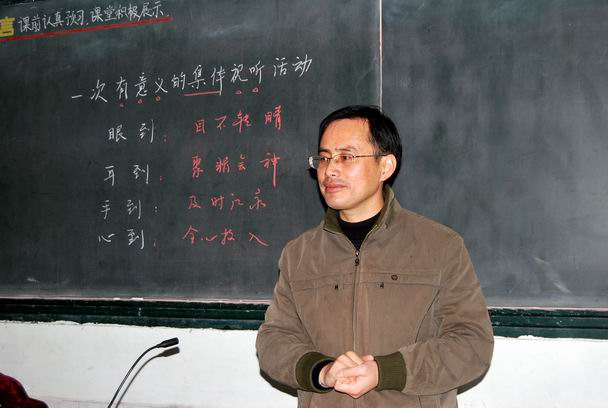 言 课前认真预习,课堂积极展示.
一次有意义的集体视听活动
眼到: 目不转睛
耳到: 聚精会神
手到: 及时记录
心到: 全心投入